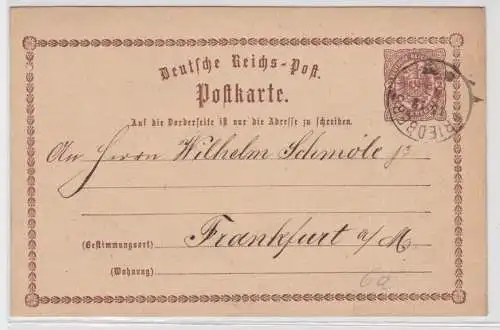 Deutsche Reichs-Post.
Postkarte.
Auf die Vorderseite ist nur die Adresse zu schreiben.
An Herrn Wilhelm Schmöle jr
(Bestimmungsort) Frankfurt a/M.
(Wohnung)